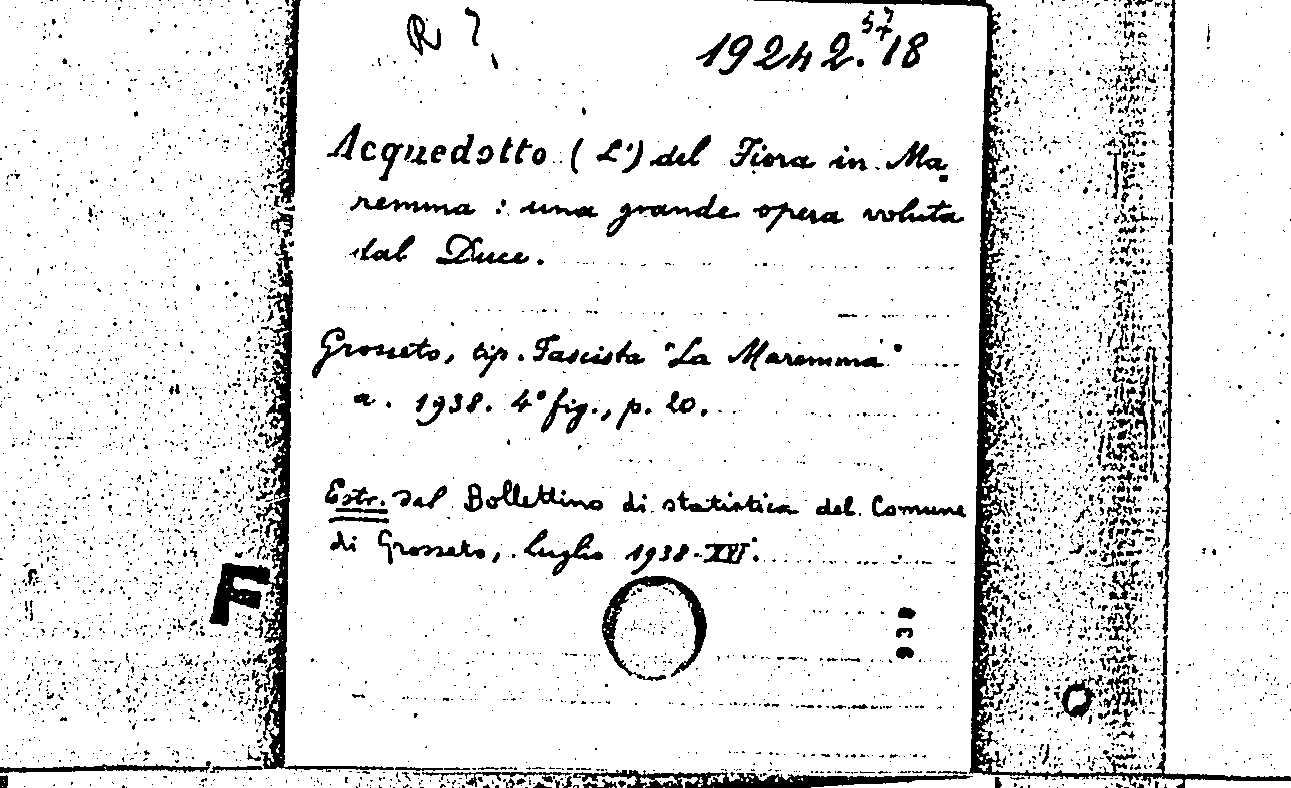 R ?
19242.18
57
Acquedotto (L') del Fiora in Ma-
remma : una grande opera voluta
dal Duce.
Grosseto, tip. Fascista "La Maremma"
a. 1938. 4° fig., p. 20.
Estr. dal Bollettino di statistica del Comune
di Grosseto, luglio 1938-XVI.
F